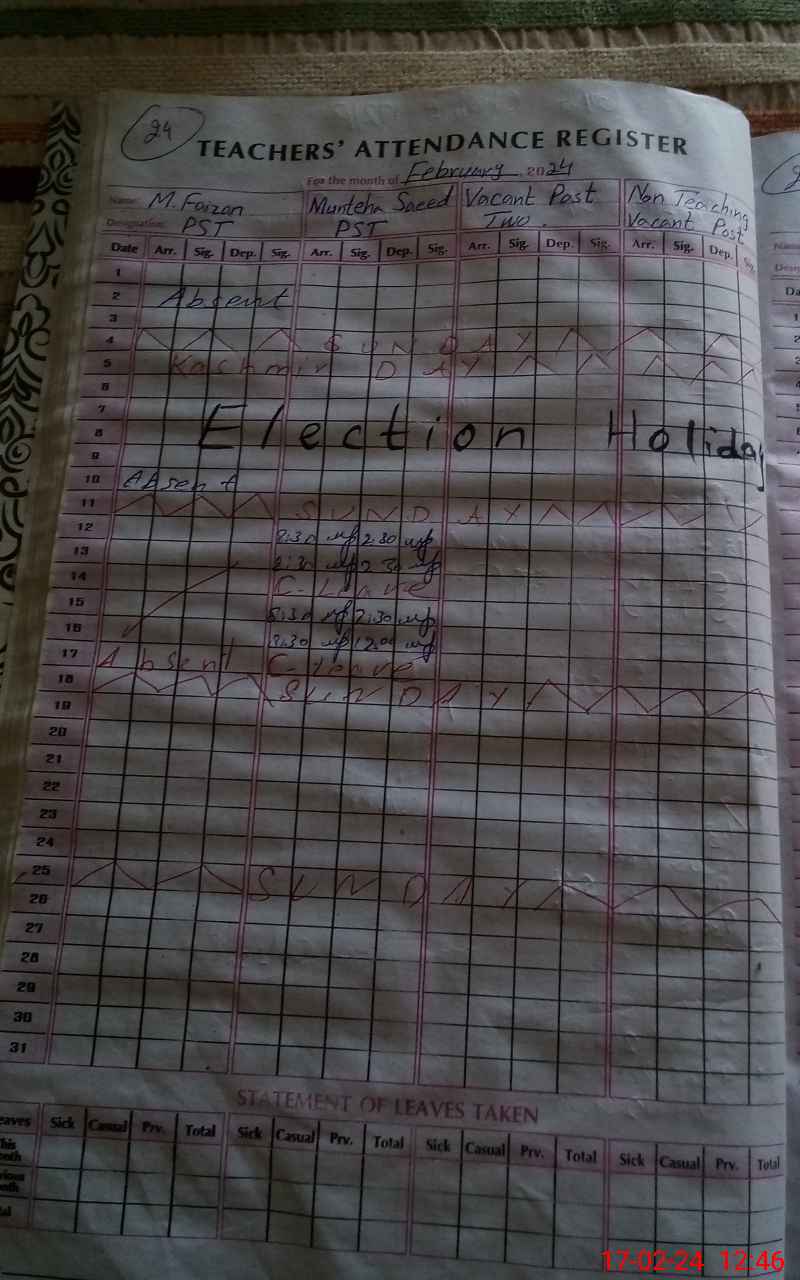 24
TEACHERS' ATTENDANCE REGISTER
For the month of February 2024
Name: M. Faizan Munteha Saeed Vacant Post Non Teaching
Designation: PST PST Two. Vacant Post
Date Arr. Sig. Dep. Sig. Arr. Sig. Dep. Sig. Arr. Sig. Dep. Sig. Arr. Sig. Dep. Sig.
1
2 Absent
3
4 SUNDAY
5 Kashmir DAY
6
7
8 Election Holiday
9
10 Absent
11 SUNDAY
12 8:30 2:30
13 8:30 2:30
14 C-Leave
15 8:30 2:30
16 8:30 12:00
17 Absent C-leave
18 SUNDAY
19
20
21
22
23
24
25 SUNDAY
26
27
28
29
30
31
STATEMENT OF LEAVES TAKEN
Sick Casual Prv. Total Sick Casual Prv. Total Sick Casual Prv. Total Sick Casual Prv. Total
17-02-24 12:46